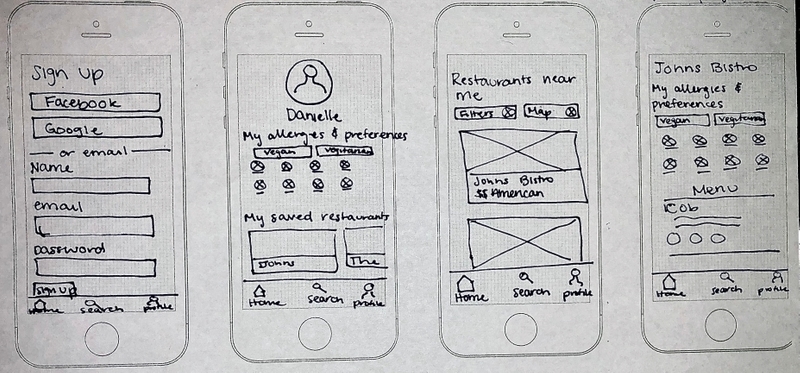 Sign up
Facebook
Google
or email
Name
email
Password
Sign up
Home search profile
Danielle
My allergies & preferences
vegan vegitarian
My saved restaurants
Johns The
Home search profile
Restaurants near
me
Filters Map
Johns Bistro
$$ American
Home search profile
Johns Bistro
My allergies &
preferences
vegan vegitarian
Menu
Cob
Home search profile